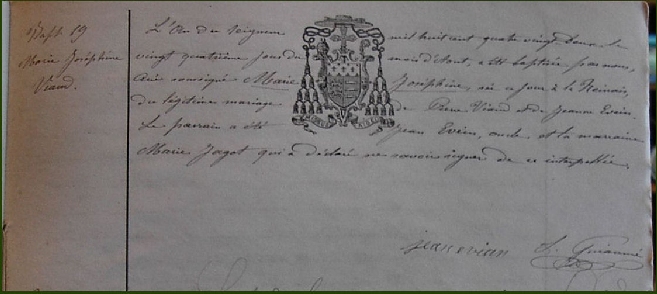 Bapt 19
Marie Joséphine
Viaud.
L'An du Seigneur mil huit cent quatre vingt deux le
vingt quatrième jour du mois d'Aout, a été baptisée par nous,
curé soussigné Marie Joséphine, née ce jour à la
du légitime mariage de Pierre Viaud et de Jeanne Evein.
Le parrain a été Jean Evein, oncle et la marraine
Marie Jagot qui a déclaré ne savoir signer de ce interpellée.
jean evien